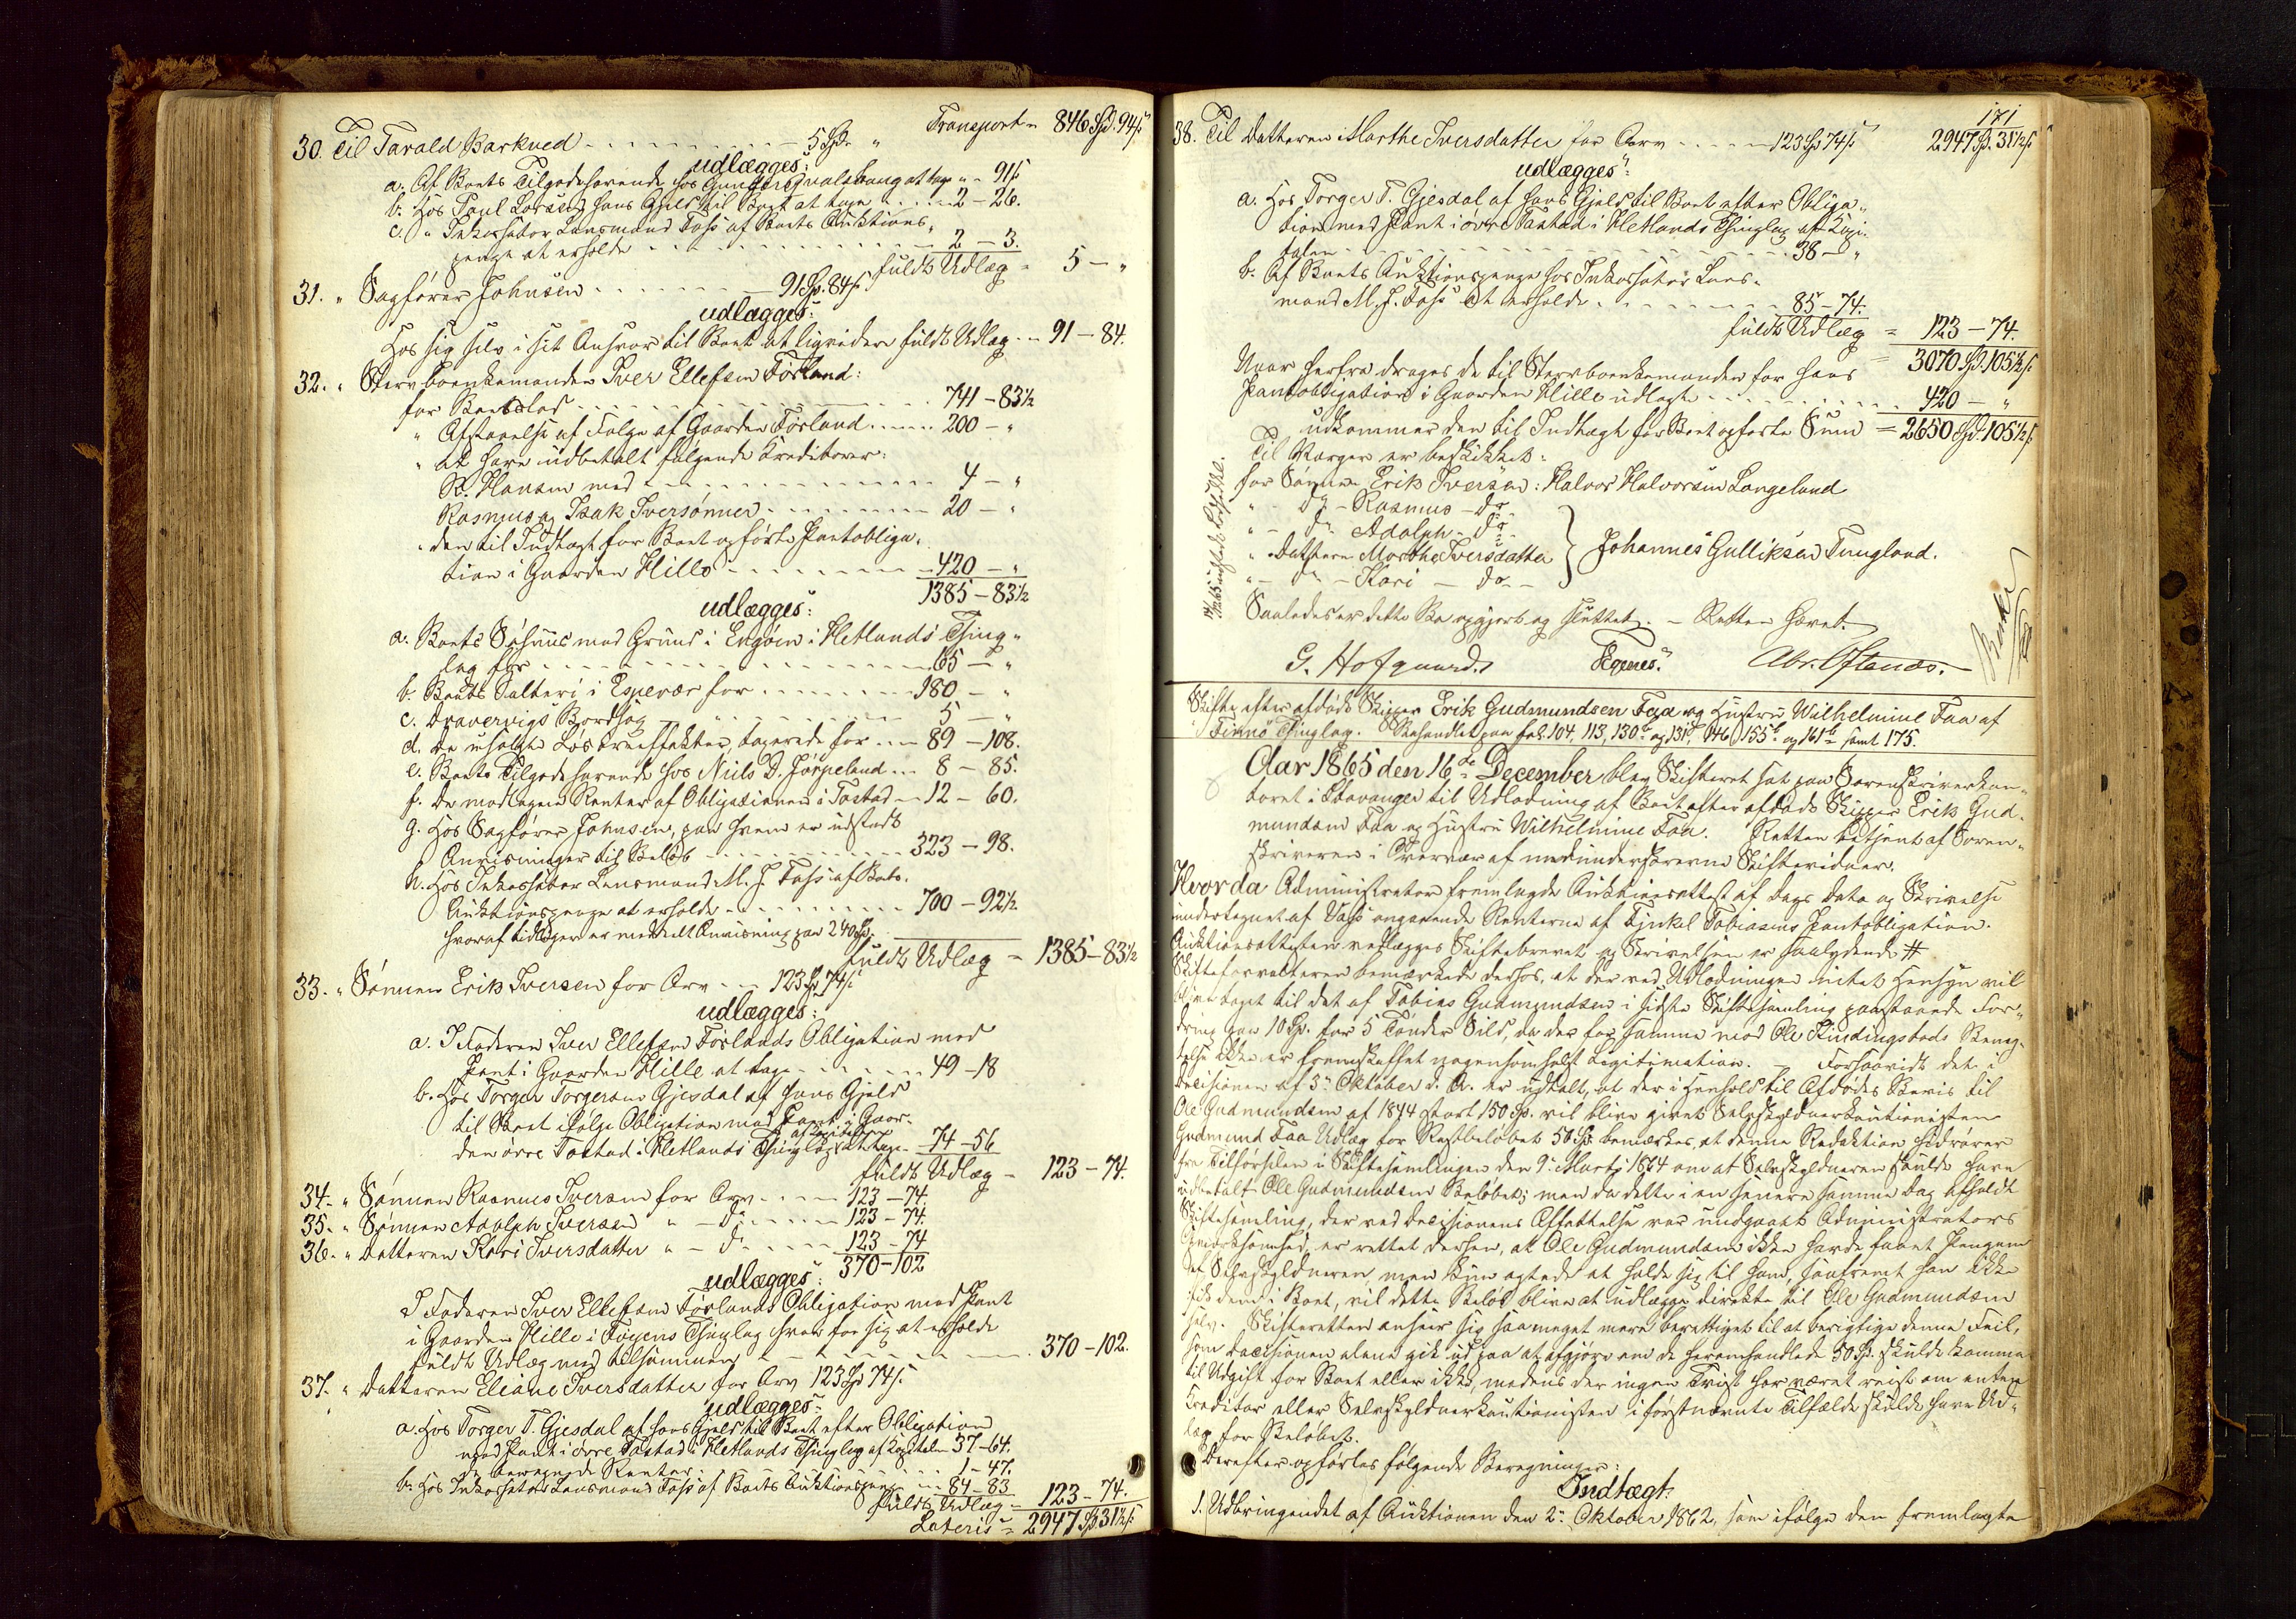 Transport = 846 Spd. 94 ß
30. Til Tarald Barkved - - - - - 5 Spd. "
udlægges:
a. Af Boets Tilgodehavende hos Gunder Qvalevaag at tage " - 91 ß
b. Hos Poul Larsen hans Gjeld til Boet at tage - - - 2 - 26.
c. " Inkassator Lensmand Foss af Boets Auktions-
penge at erholde - - - - - 2 - 3.
fuldt Udlæg = 5 - "
31. " Sagfører Johnsen - - - - - 91 Sp. 84 ß.
udlægges:
Hos sig selv i sit Ansvar til Boet at liqvidere fuldt Udlæg - - 91 - 84.
32. " Stervboenkemanden Iver Ellefsen Førland:
for Boeslod - - - - - 741 - 83½
" Afstaaelse af Følge af Gaarden Førland - - - 200 - "
" at have indbetalt følgende Kreditorer:
R. Hansen med - - - - - 4 - "
Rasmus og Isak Iversønner - - - - - 20 - "
" den til Indtægt for Boet opførte Pantobliga-
tion i Gaarden Hille - - - - - 420 - "
1385 - 83½
udlægges:
a. Boets Søhuus med Grund i Engøen i Hetlands Thing-
lag for - - - - - 65 - "
b. Boets Salteri i Espevær for - - - - - 180 - "
c. Dravervigs Bordsag - - - - - 5 - "
d. De usolgte Løsøreeffekter, taxerede for - - - 89 - 108.
e. Boets Tilgodehavende hos Niels D. Jørpeland - - 8 - 85.
f. De modtagne Renter af Obligationen i Tastad - - 12 - 60.
g. Hos Sagfører Johnsen, paa hvem er udstedt
Anvisninger til Beløb - - - - - 323 - 98.
h. Hos Inkassator Lensmand M. J. Foss af Boets
Auktionspenge at erholde - - - - - 700 - 92½
hvoraf tidligere er meddelt Anvisning paa 240 Sp.
fuldt Udlæg = 1385 - 83½
33. " Sønnen Erik Iversen for Arv - - - 123 Sp. 74 ß
udlægges:
a. I Faderen Iver Ellefsen Førlands Obligation med
Pant i Gaarden Hille at tage - - - - - 49 - 18
b. Hos Torger Torgersen Gjesdal af hans Gjeld
til Boet ifølge Obligation med Pant i Gaar-
af Kapitalen
den øvre Tastad i Hetlands Thinglag at tage - 74 - 56
fuldt Udlæg - 123 - 74.
34. " Sønnen Rasmus Iversen for Arv - - - 123 - 74.
35. " Sønnen Adolph Iversen " - do - - - - 123 - 74.
36. " Datteren Kari Iversdatter " - do - - - - 123 - 74
370 - 102
udlægges:
I Faderen Iver Ellefsen Førlands Obligation med Pant
i Gaarden Hille i Føyens Thinglag hver for sig at erholde
fuldt Udlæg med tilsammen - - - - - 370 - 102.
37. " Datteren Eliane Iversdatter for Arv 123 Sp. 74 ß.
udlægges:
a. Hos Torger T. Gjesdal af hans Gjeld til Boet efter Obligation
med Pant i øvre Tastad i Hetlands Thinglag af Kapitalen 37 - 64.
de beregnede Renter - - - - - 1 - 47.
b. Hos Inkassator Lensmand Foss af Boets Auktionspenge - - 84 - 83
fuldt Udlæg = 123 - 74.
Lateris = 2947 Sp. 31½ ß
171
38. Til Datteren Marthe Iversdatter for Arv - - - - 123 Sp. 74 ß 2947 Sp. 31½ ß
udlægges:
a. Hos Torger T. Gjesdal af hans Gjeld til Boet efter Obliga-
tion med Pant i øvre Tastad i Hetlands Thinglag af Kapi-
talen - - - - - 38 - "
b. Af Boets Auktionspenge hos Inkassator Lens-
mand M. J. Foss at erholde - - - - - 85 - 74.
fuldt Udlæg = 123 - 74.
= 3070 Sp. 105½ ß
Naar herfra drages de til Stervboenkemanden for hans
Pantobligation i Gaarden Hille udlagte - - - - - 420 - "
udkommer den til Indtægt for Boet opførte Sum = 2650 Spd. 105½ ß.
Til Værger er beskikket:
for Sønnen Erik Iversen: Halvor Halvorsen Langeland
" - do - Rasmus - do -
" - do - Adolph - do -
" Datteren Marthe Iversdatter } Johannes Gulliksen Tungland.
" - do - Kari - do -
Saaledes er dette Bo opgjort og sluttet. - Retten hævet.
G. Hofgaard. Egenes. Abr. Oftenæs.
Skifte efter afdøde Skipper Erik Gudmundsen Faa og Hustru Wilhelmine Faa af
Finnø Thinglag. Behandlet paa fol. 104, 113, 130b og 131b, 146, 155b og 161b samt 175.
Aar 1865 den 16de December blev Skifteret sat paa Sorenskriverkon-
toret i Stavanger til Udlodning af Boet efter afdøde Skipper Erik Gud-
mundsen Faa og Hustru Wilhelmine Faa. Retten betjent af Soren-
skriveren i Overvær af medunderskrevne Skiftevidner.
Hvorda Administrator fremlagde Auktionsattest af Dags Dato og Skrivelse
undertegnet af Vass angaaende Renterne af Tjerkel Tobiasens Pantobligation.
Auktionsattesten vedlægges Skiftebrevet og Skrivelsen er saalydende #
Skifteforvalteren bemærkede derhos, at der ved Udlodningen intet Hensyn vil
blive taget til det af Tobias Gudmundsen i sidste Skiftesamling paastaaede For-
dring paa 10 Sp. for 5 Tønder Sild, da der for samme mod Ole Kindingstads Benæg-
telse ikke er fremskaffet nogensomhelst Legitimation. - Forsaavidt det i
Decisionen af 3die Oktober d. A. er udtalt, at der i Henhold til Afdødes Bevis til
Ole Gudmundsen af 1844 stort 150 Sp. vil blive givet Selvskyldnerkautionisten
Gudmund Faa Udlæg for Restbeløbet 50 Sp. bemærkes, at denne Redaktion hidrører
fra Tilførselen i Skiftesamlingen den 9de Marts 1864 om at Selvskyldneren skulde have
udbetalt Ole Gudmundsen Beløbet; men da dette i en senere samme Dag afholdt
Skiftesamling, der ved Decisionens Affattelse var undgaaet Administrators
Opmærksomhed, er rettet derhen, at Ole Gudmundsen ikke havde faaet Pengene
af Selvskyldneren, men kun agtede at holde sig til ham, saafremt han ikke
fik dem i Boet, vil dette Beløb blive at udlægge direkte til Ole Gudmundsen
selv. Skifteretten anseer sig saameget mere berettiget til at berigtige denne Feil,
som Decisionen alene gik ud paa at afgjøre om de heromhandlede 50 Sp. skulde komme
til Udgift for Boet eller ikke, medens der ingen Tvist har været reist om enten
Creditor eller Selvskyldnerkautionisten i førstnævnte Tilfælde skulde have Ud-
læg for Beløbet.
Derefter opførtes følgende Beregninger:
Indtægt:
1. Udbringendet af Auktionen den 2den Oktober 1862, som ifølge den fremlagte